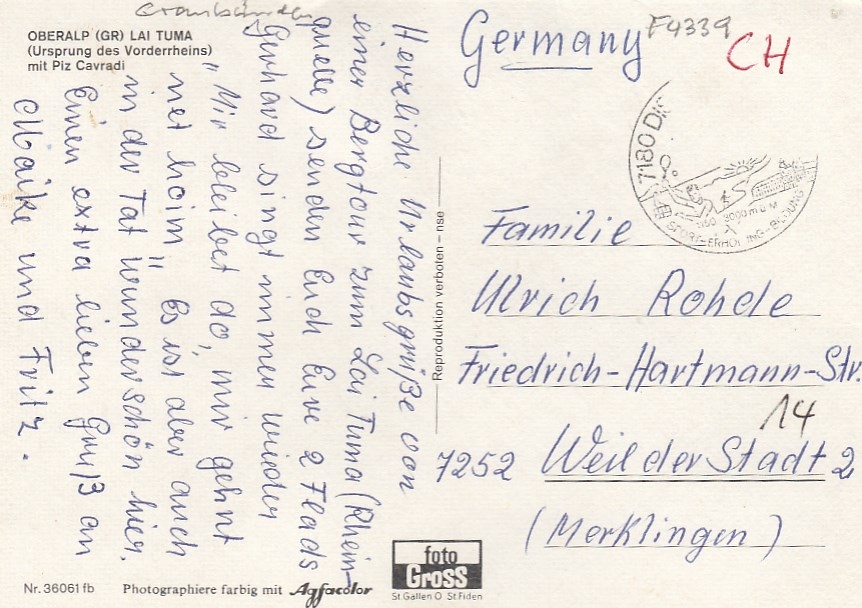 Graubünden
OBERALP (GR) LAI TUMA
(Ursprung des Vorderrheins)
mit Piz Cavradi
Herzliche Urlaubsgrüße von
einer Bergtour zum Lai Tuma (Rhein-
quelle) senden Euch Eure 2 Flads
Gerhard singt immer wieder
"Mir bleibet do, mir gehnt
net hoim" Es ist aber auch
in der Tat wunderschön hier.
Einen extra lieben Gruß an
Maike und Fritz.
Nr. 36061 fb
Photographiere farbig mit Agfacolor
Reproduktion verboten – nse
foto
Gross
St.Gallen O St.Fiden
Germany
F4339
CH
7180 DIS
3000 m ü M
SPORT-ERHOLUNG-BILDUNG
Familie
Ulrich Rohde
Friedrich-Hartmann-Str.
14
7252 Weil der Stadt 2
(Merklingen)